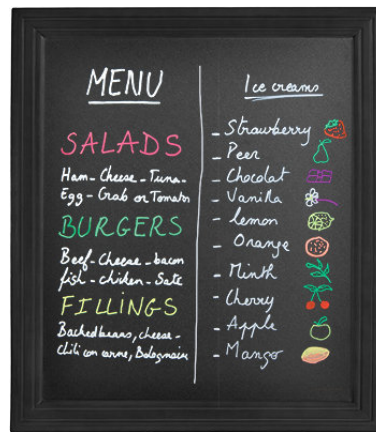 MENU
SALADS
Ham - Cheese - Tuna -
Egg - Crab or Tomato
BURGERS
Beef - Cheese - bacon
fish - chiken - Sate
FILLINGS
Backed beans, cheese -
Chili con carne, Bolognaise
Ice creams
- Strawberry
- Peer
- Chocolat
- Vanilla
- lemon
- Orange
- Minth
- Cherry
- Apple
- Mango